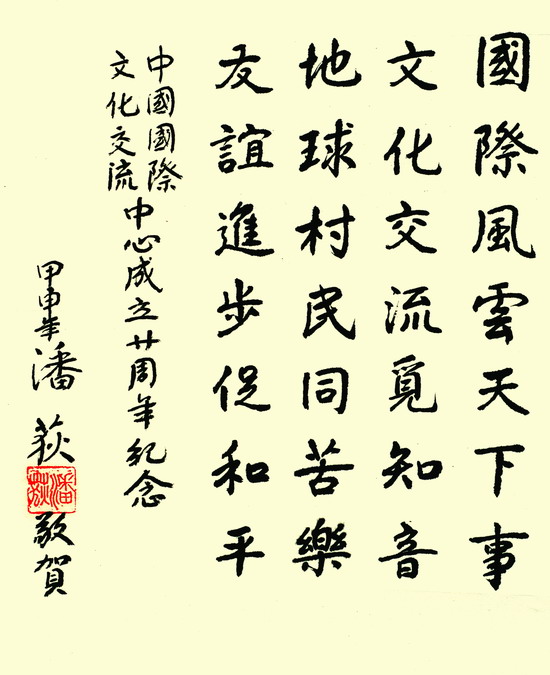 國際風雲天下事
文化交流覓知音
地球村民同苦樂
友誼進步促和平
中國國際
文化交流
中心成立廿周年紀念
甲申年潘荻
潘荻
敬賀